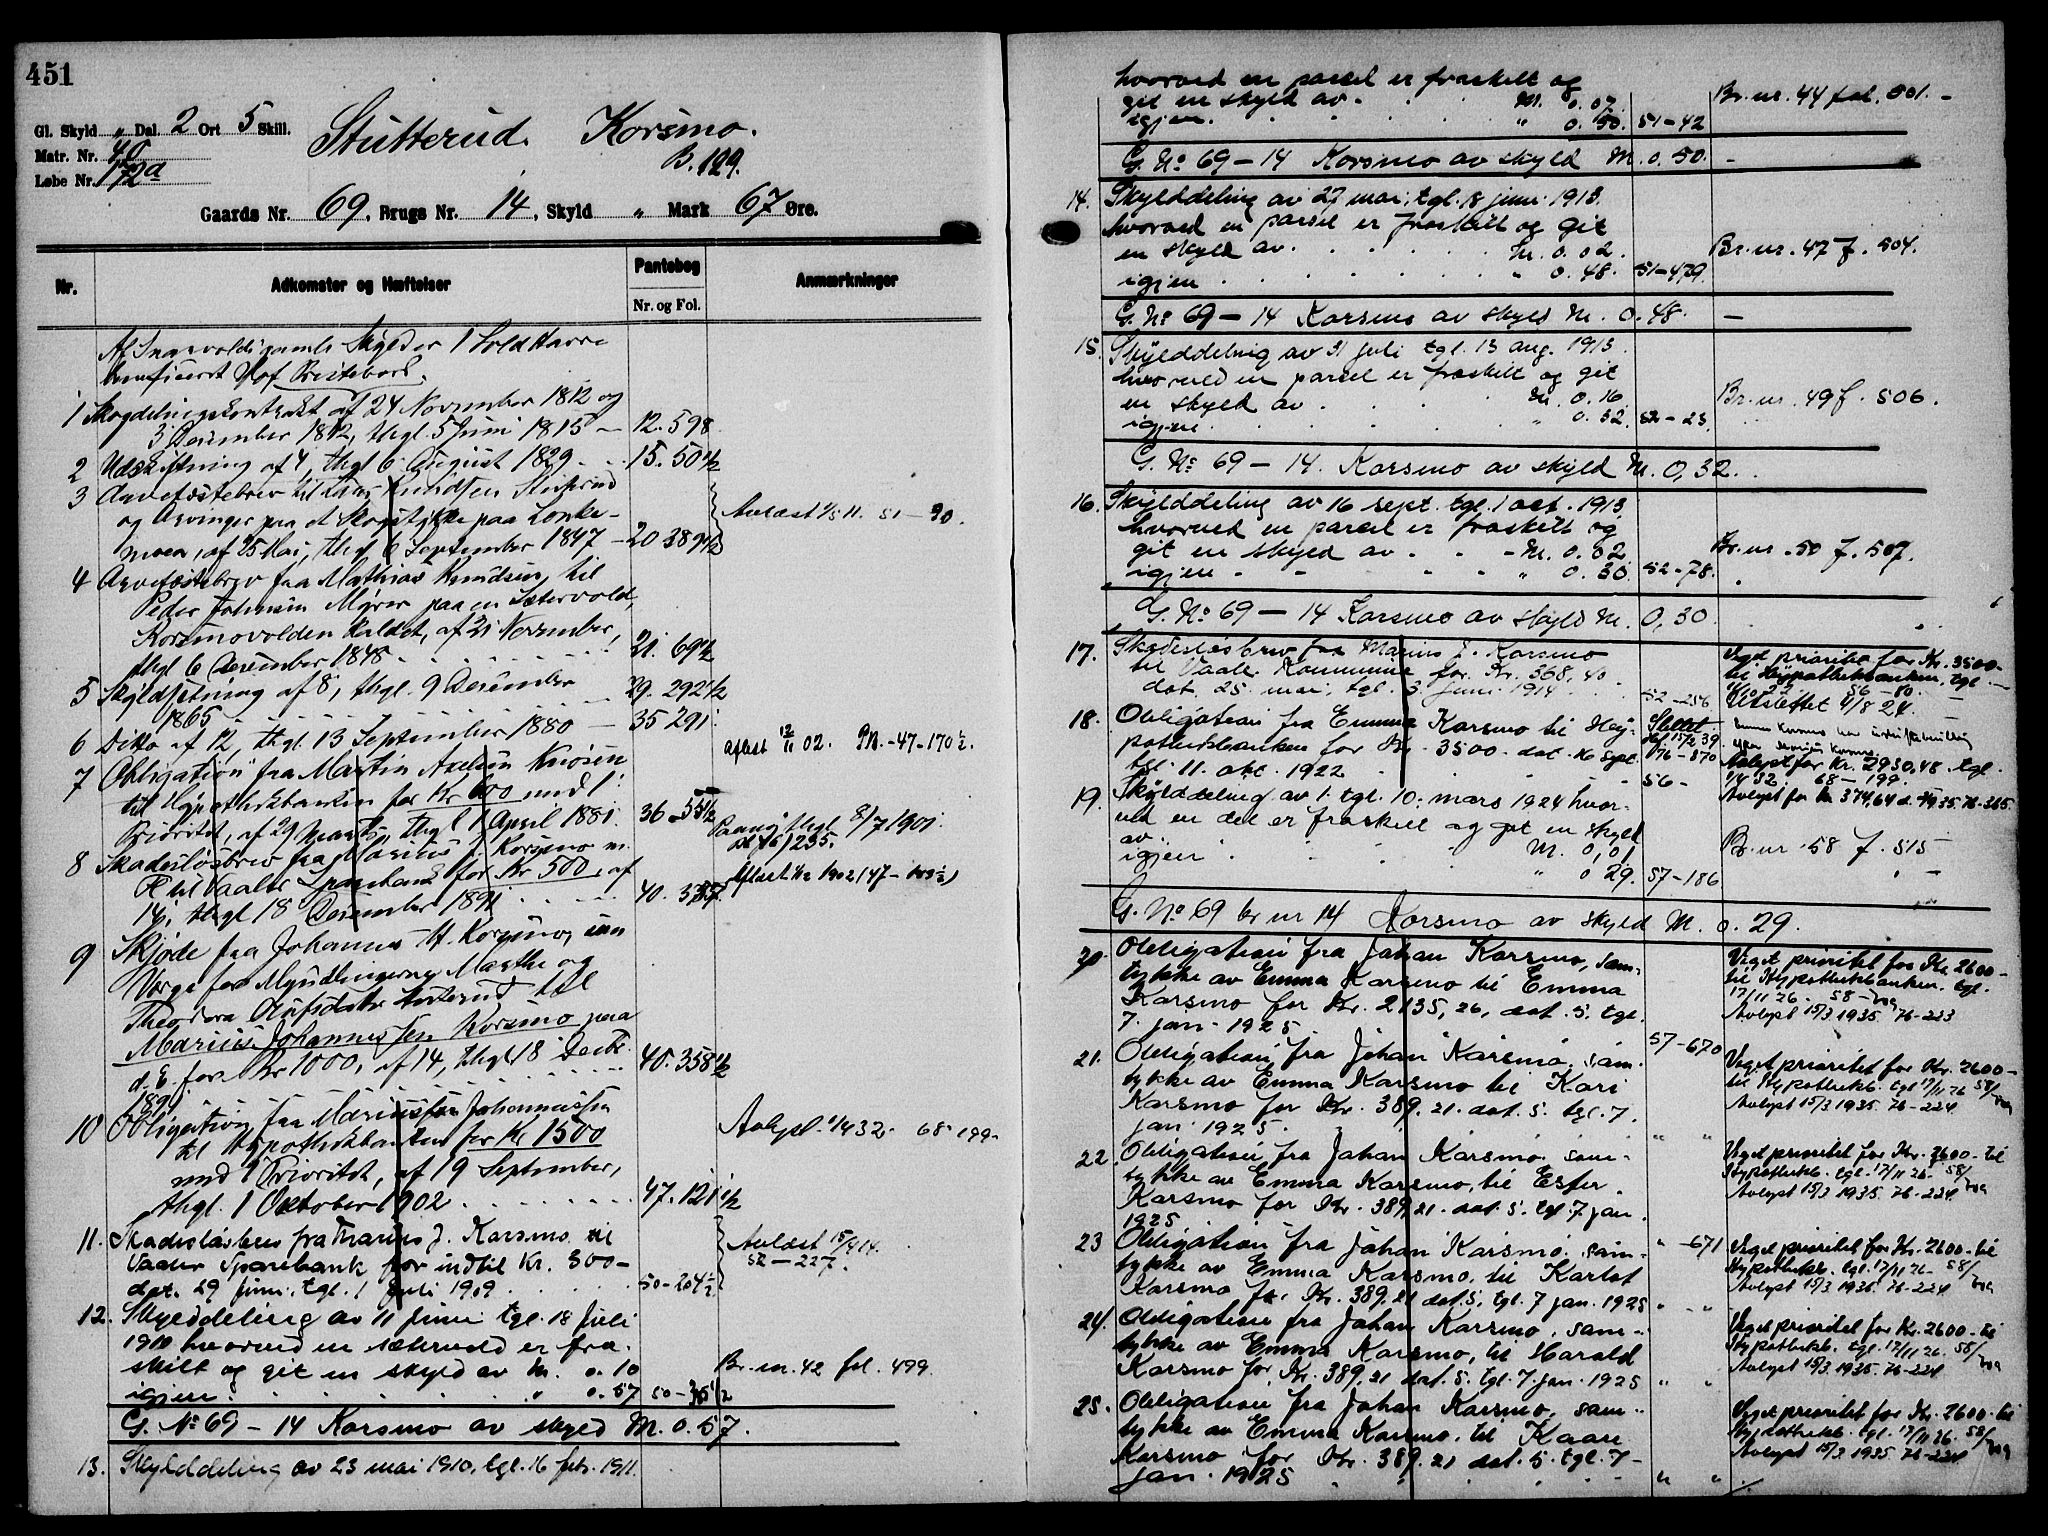 451
Gl. Skyld " Dal. 2 Ort 5 Skill.
Matr. Nr. 40
Løbe Nr. 172a
Stutterud. Korsmo.
B. 129.
Gaards Nr. 69, Brugs Nr. 14, Skyld " Mark 67 Øre.
Nr. Adkomster og Hæftelser Pantebog Anmærkninger
Nr. og Fol.
1 Skogdelingskontrakt af 24 November 1812 og
3 Desember 1812, thgl. 5 Juni 1815 — 12.598
2 Udskiftning af 4, thgl 6 August 1829 15. 50 1/2
3 Arvefæstebrev til Lars Knudsen
og Arvinger paa et Skogstykke paa
moen, af 25 Mai, thgl 6 September 1847 — 20 389 1/2
Avlæst 51 — 90.
4 Arvefæstebrev fra Mathias Knudsen til
Peder Johnsen Myrer paa en Sætervold,
Korsmovolden kaldet, af 21 November,
thgl 6 Desember 1848 21. 69 1/2
5 Skyldsetning af 8, thgl. 9 Desember
1865 29. 292 1/2
6 Ditto af 12, thgl. 13 September 1880 — 35 291
aflæst 12/11 02. Pb. - 47 - 170 1/2.
7 Obligation fra Martin
til Hypothekbanken for Kr 600 med 1
Prioritet, af 29 Marts, thgl 1 April 1881. 36 - 551/2
thgl 8/7 1901.
235.
8 Skadesløsbrev fra Marius J Korsmo m.
Fl til Vaaler Sparebank for Kr 500, af
14, thgl 18 Desember 1891 40. 357
9 Skjøde fra Johannes H. Korsmo, som
Verge for Myndlingerne Marthe og
Theodora Olufsdatter til
Marius Johannessen Korsmo paa
d. E. for Kr 1000, af 14, thgl. 18 Decbr.
1891 40. 358 1/2
10 Obligation fra Marius Johannessen
til Hypothekbanken for Kr 1500
med 1 Prioritet, af 19 September,
thgl. 1 Oktober 1902 47. 121 1/2
Avlyst 1/4 32. 68 - 199 -
11. Skadesløsbrev fra Marius J. Karsmo til
Vaaler Sparebank for indtil Kr. 300 -
dat. 29 juni. tgl. 1 juli 1909 50 - 204 1/2
Avlæst 15/4 14.
52 — 227.
12. Skylddeling av 11 juni tgl. 18 juli
1910 hvorved en sætervold er fra-
skilt og git en skyld av M. 0. 10
igjen. " 0. 57
Br. nr. 42 fol. 499.
G. No 69 — 14 Karsmo av skyld M. 0. 57.
13. Skylddeling av 23 mai 1910, tgl. 16 febr. 1911.
hvorved en parsel er fraskilt og
git en skyld av . . M. 0. 07.
igjen. " 0. 50. 51 - 42
Br. nr. 44 fol. 501. -
G. No 69 — 14 Karsmo av skyld M. 0. 50. —
14. Skylddeling av 27 mai, tgl. 18 juni 1913.
hvorved en parsel er fraskilt og git
en skyld av. M. 0. 02.
igjen " 0. 48. 51 - 479.
Br. nr. 47 f. 504.
G. No 69 — 14 Karsmo av skyld M. 0. 48. —
15. Skylddeling av 31 juli tgl. 13 aug. 1913.
hvorved en parsel er fraskilt og git
en skyld av M. 0. 16
igjen. " 0. 32. 52 - 23.
Br. nr. 49 f. 506.
G. No 69 — 14. Karsmo av skyld M. 0,32.
16. Skylddeling av 16 sept. tgl. 1 oct. 1913
hvorved en parsel er fraskilt og
git en skyld av . . - M. 0. 02
igjen " 0. 30. 52 - 78.
Br. nr. 50 f. 507.
G. No 69 — 14 Karsmo av skyld M. 0,30.
17. Skadesløsbrev fra Marius J. Karsmo
til Vaaler Kommune for Kr. 368,40.
dat. 25. mai, tgl. 3. juni 1914 52 - 256
Veget prioritet for Kr. 3500 -
til Hypothekbanken, tgl.
56 - 80.
Utslettet 4/8 24.
18. Obligation fra Emma Karsmo til Hy-
pothekbanken for Kr. 3500 dat. 16 sept.
tgl. 11. okt. 1922 56 -
Slettet
15/2 39
76 - 870
Avlyst for Kr. 2930,48. tgl.
1/4 32 68 - 199.
Avlyst for Kr 374,64 76 - 365
19. Skylddeling av 1. tgl. 10. mars 1924 hvor-
ved en del er fraskilt og git en skyld
av M. 0,01
igjen " 0 29. 57 - 186
Br. nr. 58 f. 515 -
G. No 69 br nr 14 Karsmo av skyld M. 0. 29.
20. Obligation fra Johan Karsmo, sam-
tykke av Emma Karsmo til Emma
Karsmo for Kr. 2135,26, dat. 5. tgl.
7. jan. 1925 57 - 670
Veget prioritet for Kr. 2600 -
til Hypothekbanken. tgl.
17/11 26. 58 -
Avlyst 15/3 1935. 76 - 223
21. Obligation fra Johan Karsmo, sam-
tykke av Emma Karsmo til Kari
Karsmo for Kr. 389. 21. dat. 5. tgl. 7.
jan. 1925. " "
Veget prioritet for Kr. 2600 -
til Hypothekb. tgl 17/11 26 58/
Avlyst 15/3 1935. 76 - 224
22. Obligation fra Johan Karsmo. sam-
tykke av Emma Karsmo, til Ester
Karsmo for Kr. 389,21 dat. 5. tgl 7 jan.
1925
Veget prioritet for Kr. 2600 - til
Hypothekb. tgl. 17/11 26. 58/
Avlyst 15/3 1935. 76 - 224
23 Obligation fra Johan Karsmo. sam-
tykke av Emma Karsmo, til Karlot
Karsmo for Kr. 389. 21 dat. 5. tgl. 7 jan. 1925
" - 671
Veget prioritet for Kr. 2600 - til
Hypothekb. tgl. 17/11 26 - 58/
Avlyst 15/3 1935. 76 - 224
24. Obligation fra Johan Karsmo, sam-
tykke av Emma Karsmo, til Harald
Karsmo for Kr. 389,21 dat. 5. tgl. 7. jan. 1925 " "
Veget prioritet for Kr. 2600 - til
Hypothekb. tgl. 17/11 26. 58/
Avlyst 15/3 1935. 76 - 224
25. Obligation fra Johan Karsmo, sam-
tykke av Emma Karsmo. til Kaare
Karsmo for Kr. 389. 21 dat. 5. tgl. 7 -
jan. 1925 " "
Veget prioritet for Kr. 2600 - til
Hypothekb. tgl. 17/11 26. 58/
Avlyst 15/3 1935. 76 - 224